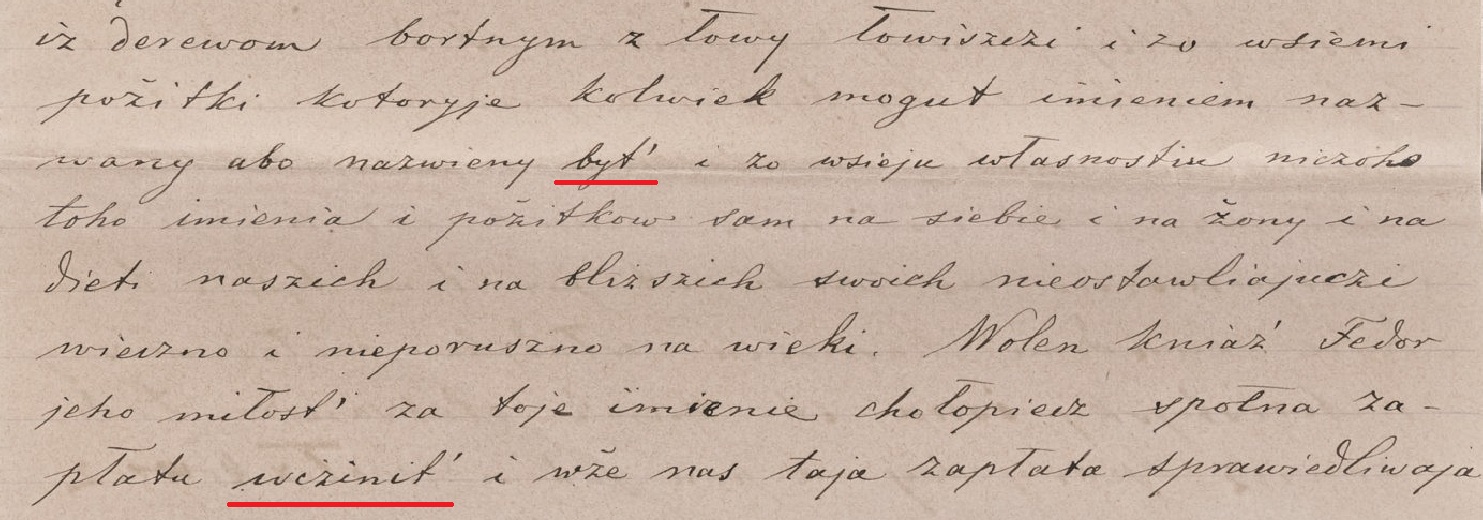 iz derewom bortnym z łowy łowiszczi i zo wsiemi
požitki kotoryje kolwiek mogut imieniem naz-
wany abo nazwieny byt' i zo wsieju własnostiu niczoho
toho imienia i požitkow sam na siebie i na žony i na
dieti naszich i na bliższich swoich nieostawliajuczi
wieczno i nieporuszno na wieki. Wolen kniaź Fedor
jeho miłost' za toje imienie chołopiecz społna za-
płatu wczinit' i wže nas taja zapłata sprawiedliwaja